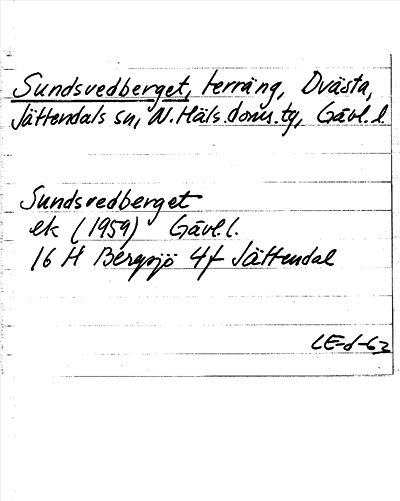 Sundsvedberget, terräng, Dvästa,
Jättendals sn, N. Häls. doms. tg, Gävl. l.
Sundsvedberget
ek (1959) Gävl. l.
16 H Bergsjö 4f Jättendal
LE-d-62